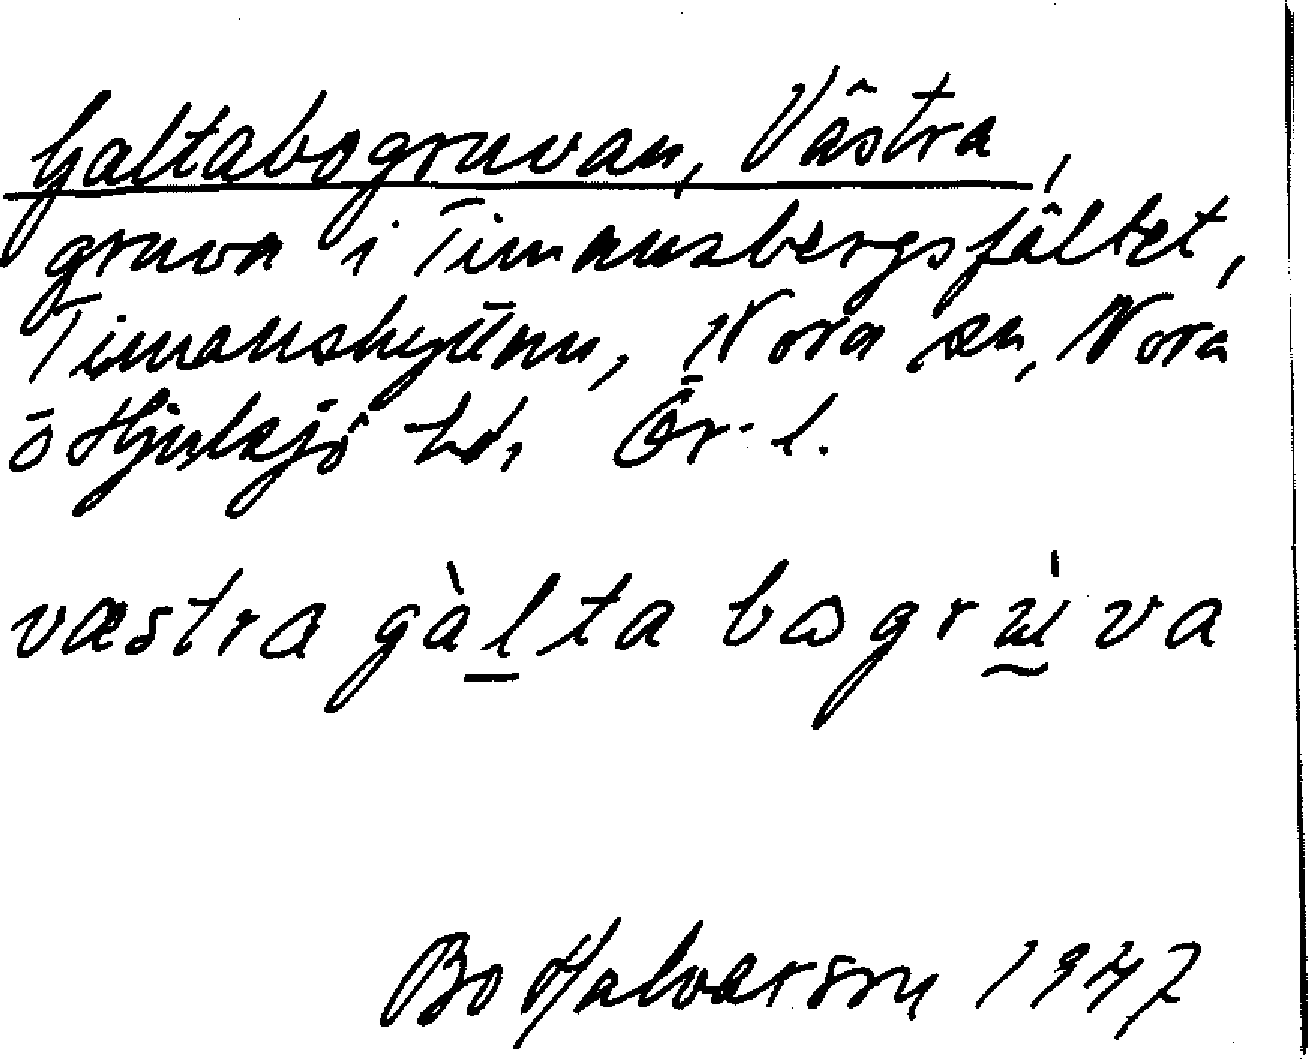 Galtabogruvan, Västra,
gruva i Timansbergsfältet,
Timanshyttan, Nora sn, Nora
o Hjulsjö hd, Ör. l.
væstra gàlta bωgrùva
Bo Halvarson 1947